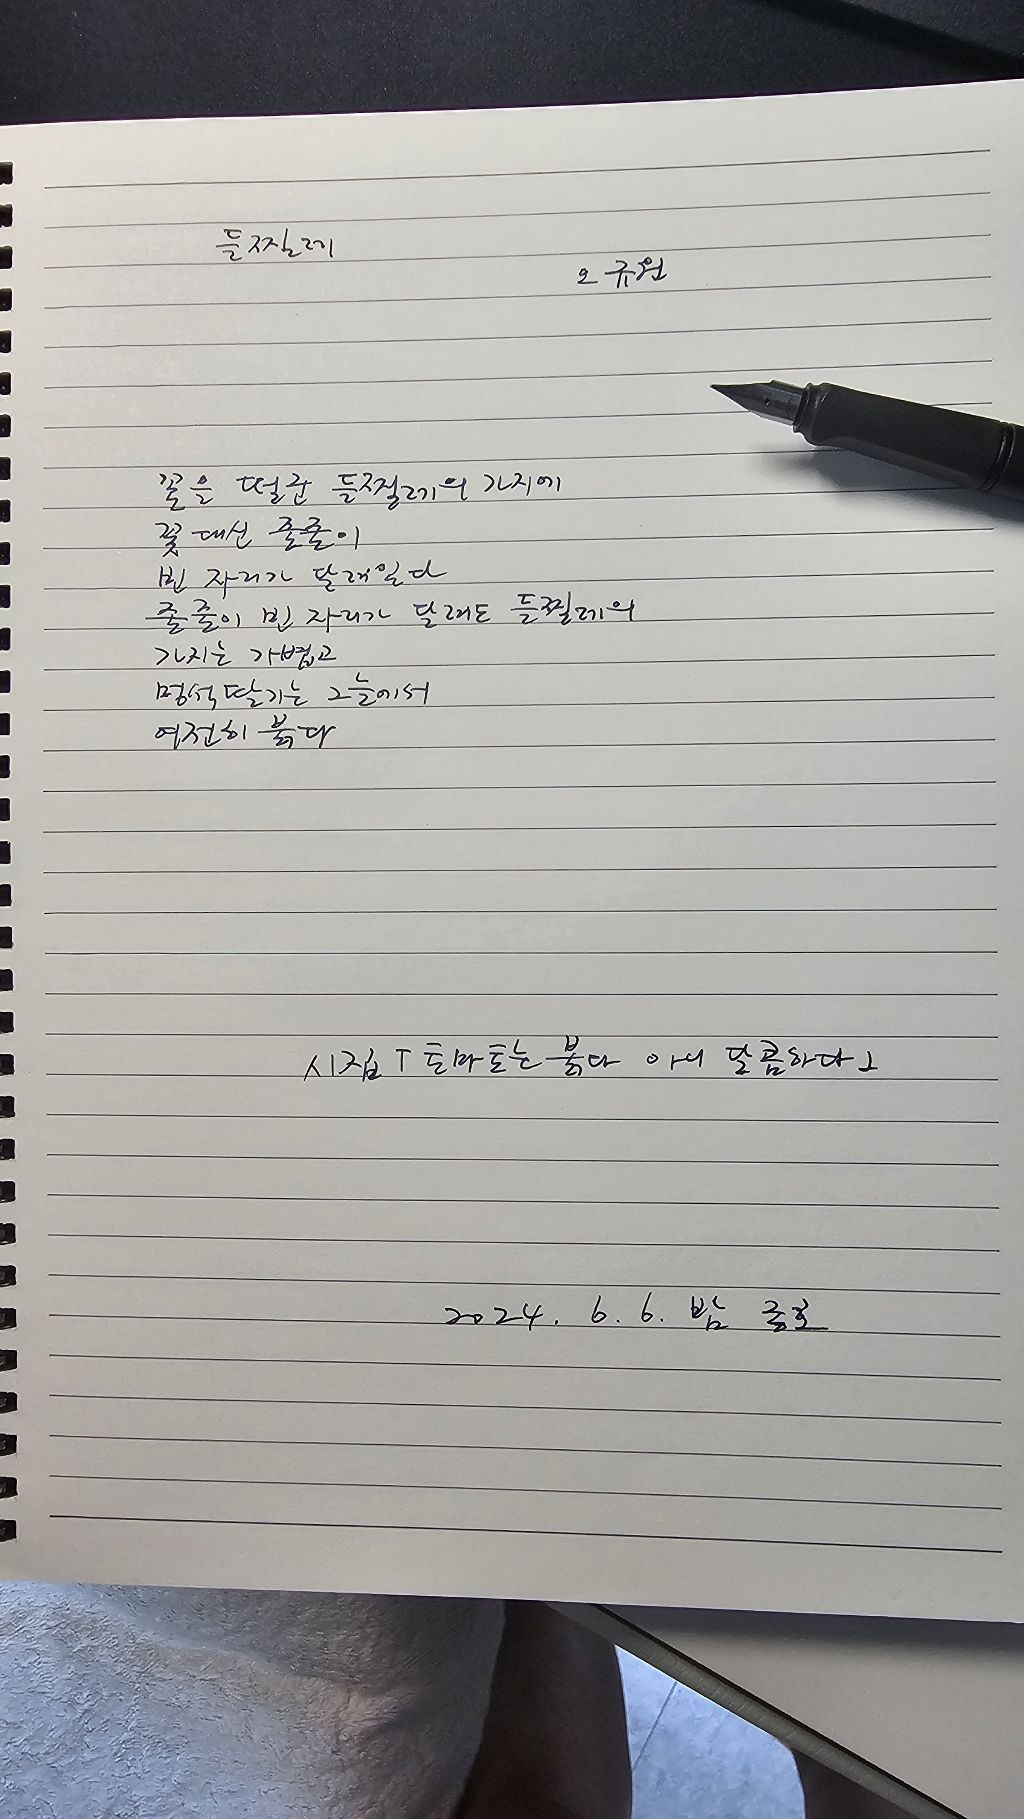 들찔레
오규원
꽃을 떨군 들찔레의 가지에
꽃 대신 줄줄이
빈 자리가 달려있다
줄줄이 빈 자리가 달려도 들찔레의
가지는 가볍고
멍석딸기는 그늘에서
여전히 붉다
시집 「토마토는 붉다 아니 달콤하다」
2024. 6. 6. 밤